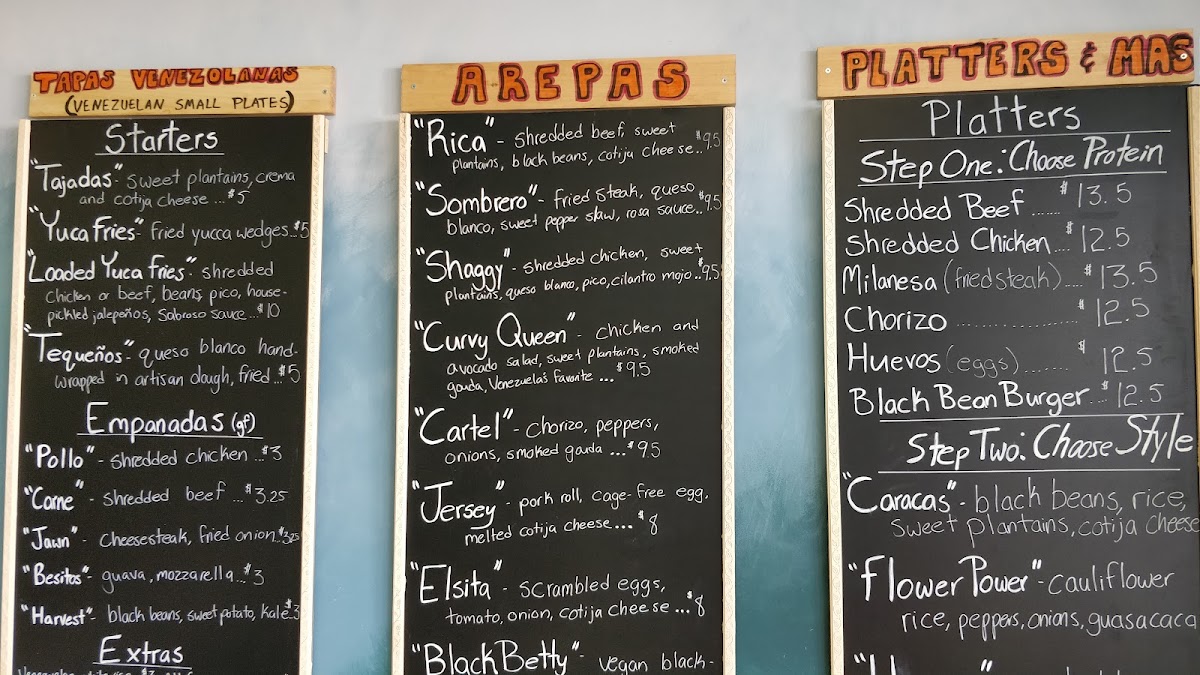 TAPAS VENEZOLANAS
(VENEZUELAN SMALL PLATES)
Starters
"Tajadas"- sweet plantains, crema
and cotija cheese ... $5
"Yuca Fries"- fried yucca wedges..$5
"Loaded Yuca Fries"- shredded
chicken or beef, beans, pico, house-
pickled jalepeños, sabroso sauce...$10
"Tequeños"- queso blanco hand-
wrapped in artisan dough, fried..$5
Empanadas (gf)
"Pollo"- shredded chicken ...$3
"Carne" - shredded beef ...$3.25
"Jawn"- cheesesteak, fried onion..$3.25
"Besitos"- guava, mozzarella...$3
"Harvest"- black beans, sweet potato, kale.$3
Extras
AREPAS
"Rica" - shredded beef, sweet
plantains, black beans, cotija cheese..$9.5
"Sombrero"- fried steak, queso
blanco, sweet pepper slaw, rosa sauce..$9.5
"Shaggy"- shredded chicken, sweet
plantains, queso blanco, pico, cilantro mojo..$9.5
"Curvy Queen" - chicken and
avocado salad, sweet plantains, smoked
gouda, Venezuela's favorite ... $9.5
"Cartel"- chorizo, peppers,
onions, smoked gouda ...$9.5
"Jersey"- pork roll, cage-free egg,
melted cotija cheese... $8
"Elsita" - scrambled eggs,
tomato, onion, cotija cheese ...$8
"Black Betty"- vegan black-
PLATTERS & MAS
Platters
Step One: Choose Protein
Shredded Beef ...... $13.5
Shredded Chicken.... $12.5
Milanesa (fried steak)..... $13.5
Chorizo .................... $12.5
Huevos (eggs)........ $12.5
Black Bean Burger... $12.5
Step Two: Choose Style
"Caracas"- black beans, rice,
sweet plantains, cotija cheese
"Flower Power"- cauliflower
rice, peppers, onions, guasacaca